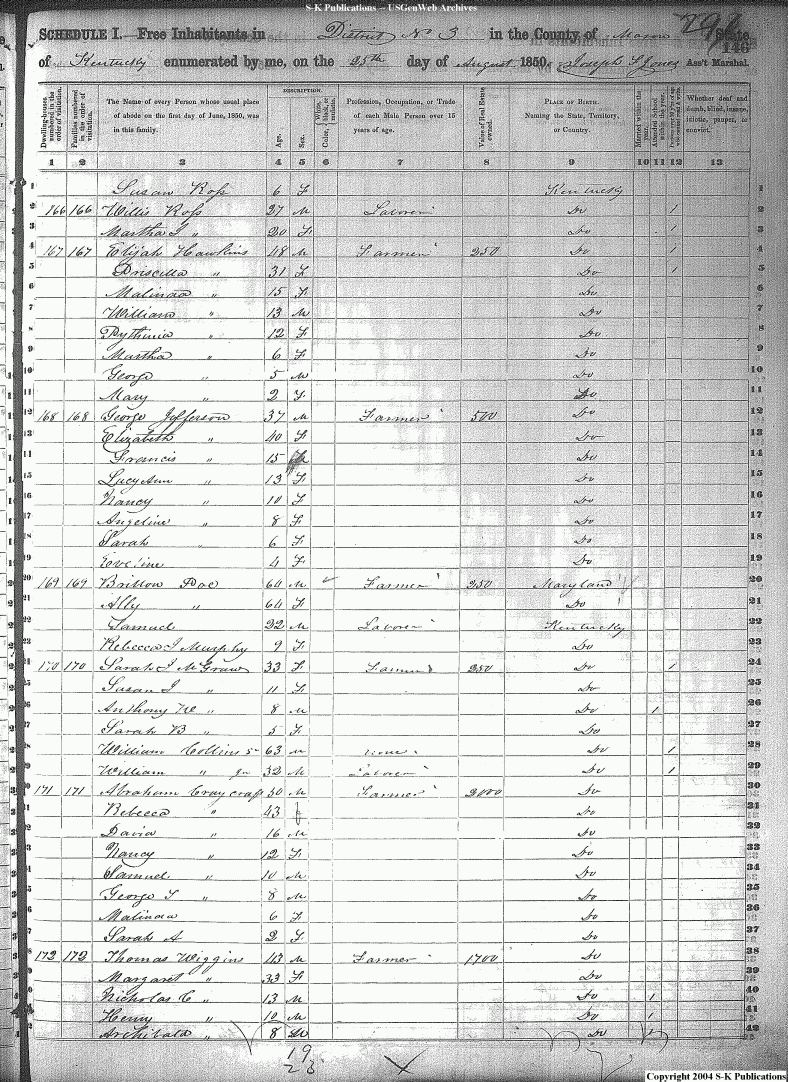 S-K Publications -- USGenWeb Archives
298
SCHEDULE I.—Free Inhabitants in District No 3 in the County of Mason State
146
of Kentucky enumerated by me, on the 25th day of August 1850. Joseph L Jones Ass't Marshal.
Dwelling-houses numbered in the order of visitation.
Families numbered in the order of visitation.
The Name of every Person whose usual place of abode on the first day of June, 1850, was in this family.
DESCRIPTION.
Age.
Sex.
Color, White, black, or mulatto.
Profession, Occupation, or Trade of each Male Person over 15 years of age.
Value of Real Estate owned.
PLACE OF BIRTH.
Naming the State, Territory, or Country.
Married within the year.
Attended School within the year.
Whether deaf and dumb, blind, insane, idiotic, pauper, or convict.
1 2 3 4 5 6 7 8 9 10 11 12 13
1 Susan Ross 6 F Kentucky 1
2 166 166 Willis Ross 27 M Laborer Do 1 2
3 Martha J " 20 F Do 1 3
4 167 167 Elijah Hawkins 48 M Farmer 250 Do 1 4
5 Driscilla " 31 F Do 1 5
6 Malinda " 15 F Do 6
7 William " 13 M Do 7
8 Pythinia " 12 F Do 8
9 Martha " 6 F Do 9
10 George " 5 M Do 10
11 Mary " 2 F Do 11
12 168 168 George Jefferson 37 M Farmer 500 Do 12
13 Elizabeth " 40 F Do 13
14 Francis " 15 M Do 14
15 Lucy Ann " 13 F Do 15
16 Nancy " 10 F Do 16
17 Angeline " 8 F Do 17
18 Sarah " 6 F Do 18
19 Eveline 4 F Do 19
20 169 169 Britton Poe 64 M Farmer 250 Maryland 20
21 Ally " 64 F Do 21
22 Samuel 22 M Laborer Kentucky 22
23 Rebecca J Murphy 9 F Do 23
24 170 170 Sarah J McGraw 33 F Farmer 250 Do 1 24
25 Susan J " 11 F Do 25
26 Anthony W " 8 M Do 1 26
27 Sarah B " 5 F Do 27
28 William Collins Sr 63 M none Do 1 28
29 William " Jr 32 M Laborer Do 1 29
30 171 171 Abraham Craycraft 50 M Farmer 2000 Do 30
31 Rebecca " 43 f Do 31
32 David " 16 M Do 32
33 Nancy " 12 F Do 33
34 Samuel " 10 M Do 34
35 George T " 8 M Do 35
36 Malinda 6 F Do 36
37 Sarah A 2 F Do 37
38 172 172 Thomas Wiggins 43 M Farmer 1700 Do 38
39 Margaret " 33 F Do 39
40 Nicholas C " 13 M Do 1 40
41 Henry " 10 M Do 1 41
42 Archibald " 8 M Do 1 42
19
23
Copyright 2004 S-K Publications